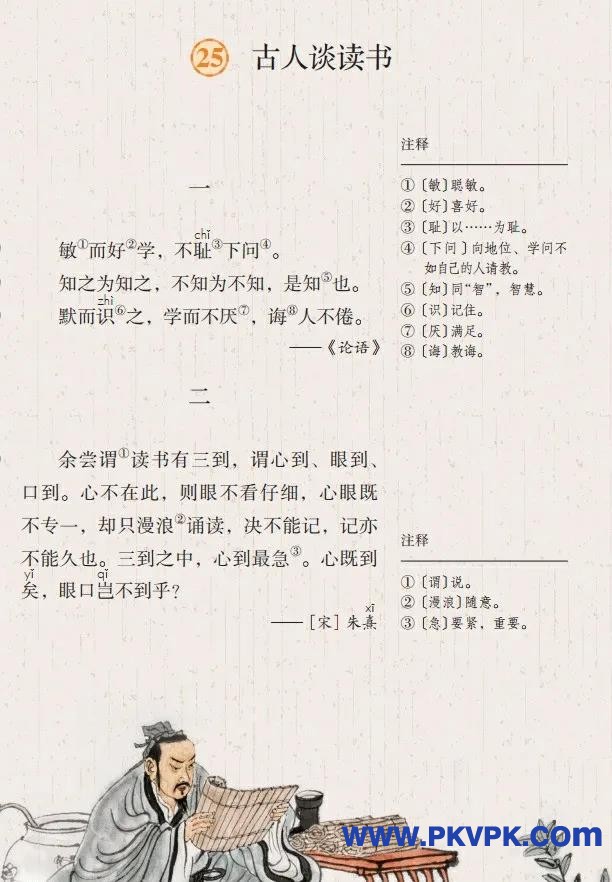 25 古人谈读书
一
chǐ
敏①而好②学，不耻③下问④。
知之为知之，不知为不知，是知⑤也。
zhì
默而识⑥之，学而不厌⑦，诲⑧人不倦。
——《论语》
注释
①〔敏〕聪敏。
②〔好〕喜好。
③〔耻〕以……为耻。
④〔下问〕向地位、学问不
如自己的人请教。
⑤〔知〕同“智”，智慧。
⑥〔识〕记住。
⑦〔厌〕满足。
⑧〔诲〕教诲。
二
余尝谓①读书有三到，谓心到、眼到、
口到。心不在此，则眼不看仔细，心眼既
不专一，却只漫浪②诵读，决不能记，记亦
不能久也。三到之中，心到最急③。心既到
yǐ qǐ
矣，眼口岂不到乎？
xī
——［宋］朱熹
注释
①〔谓〕说。
②〔漫浪〕随意。
③〔急〕要紧，重要。
www.PKVPK.com